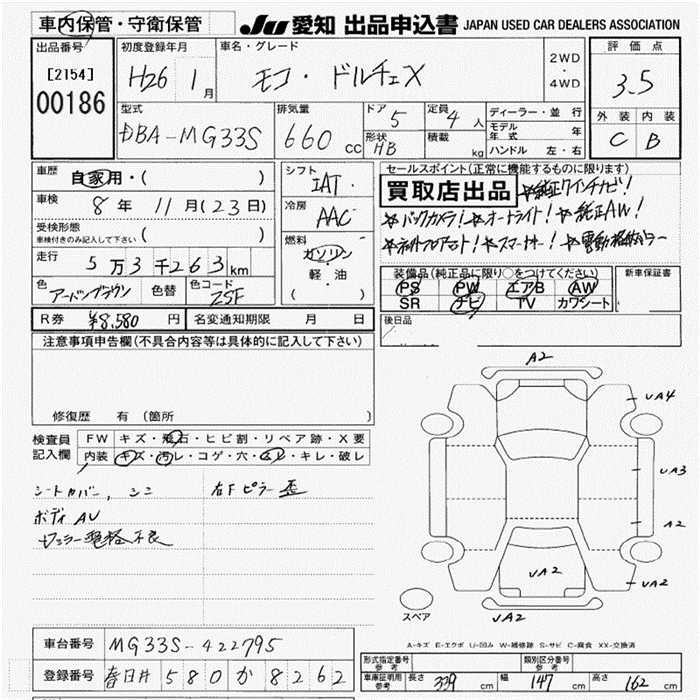 車内保管・守衛保管
JU 愛知 出品申込書 JAPAN USED CAR DEALERS ASSOCIATION
出品番号 初度登録年月 車名・グレード 評価点
[2154] H26 1月 モコ・ドルチェX 2WD・4WD 3.5
00186
型式 排気量 ドア 定員 ディーラー・並行 外装 内装
DBA-MG33S 660cc 5 4人 モデル年式 年 C B
形状 HB 積載 kg ハンドル 左・右
車歴 自家用・( ) シフト IAT セールスポイント(正常に機能するものに限ります)
買取店出品 純正ワイドナビ!
車検 8年 11月(23日) 冷房 AAC バックカメラ! オートライト! 純正AW!
受検形態 車検付きのみ記入して下さい ( ) 燃料 ガソリン フロアマット! スマートキー! 電動格納ミラー
走行 5万3千263km 軽・油 装備品(純正品に限り○をつけてください) 新車保証書
( ) PS PW エアB AW
色 アーバンブラウン 色替 色コード ZSF SR ナビ TV カワシート
R券 ¥8,580円 名変通知期限 月 日 後日品
注意事項申告欄(不具合内容等は具体的に記入して下さい)
修復歴 有 (箇所 )
検査員記入欄 FW キズ・飛石・ヒビ割・リペア跡・X要
内装 キズ・汚レ・コゲ・穴・ムレ・キレ・破レ
シートカバー, シミ 右Fピラー 歪
ボディ AU
ミラー 電格不良
A2
UA4
UA3
A2
UA2
UA2
UA2
スペア
A-キズ E-エクボ U-凹み W-補修跡 S-サビ C-腐食 XX-交換済
車台番号 MG33S-422795
登録番号 春日井 580 か 8262
形式指定番号 参考 類別区分番号 参考
車庫証明用参考 長さ 339 cm 幅 147 cm 高さ 162 cm